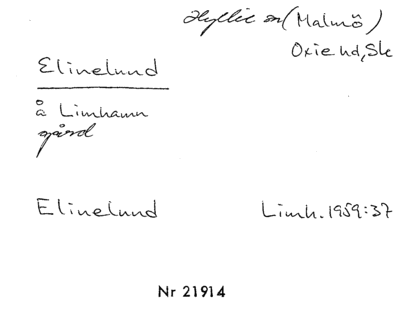 Hyllie sn (Malmö)
Oxie hd, Sk
Elinelund
å Limhamn
gård
Elinelund Limh. 1959:37
Nr 21914